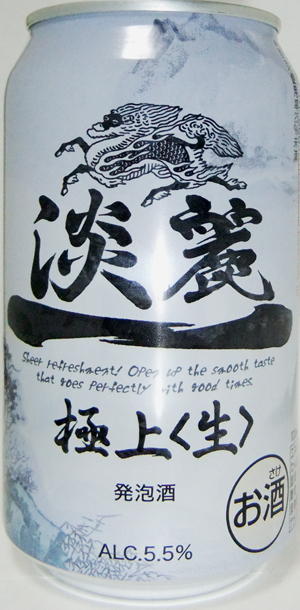 淡麗
Sheer refreshment! Open up the smooth taste
that goes perfectly with good times.
極上〈生〉
発泡酒
さけ
お酒
ALC.5.5%